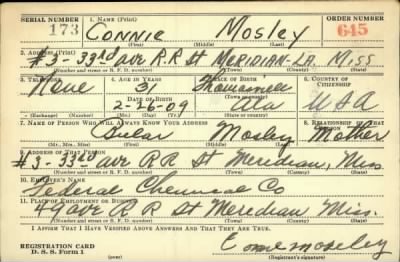 SERIAL NUMBER 1. NAME (Print) ORDER NUMBER
173 CONNIE MOSLEY 645
(First) (Middle) (Last)
2. ADDRESS (Print)
#3-33rd ave R.R St MERIDIAN-LA. MISS
(Number and street or R. F. D. number) (Town) (County) (State)
3. TELEPHONE 4. AGE IN YEARS 5. PLACE OF BIRTH 6. COUNTRY OF CITIZENSHIP
None 31
DATE OF BIRTH (Town or county)
2-26-09 Ala USA
(Exchange) (Number) (Mo.) (Day) (Yr.) (State or country)
7. NAME OF PERSON WHO WILL ALWAYS KNOW YOUR ADDRESS 8. RELATIONSHIP OF THAT PERSON
Beular Mosley Mother
(Mr., Mrs., Miss) (First) (Middle) (Last)
9. ADDRESS OF THAT PERSON
#3-33rd ave R R St Meridian, Miss.
(Number and street or R. F. D. number) (Town) (County) (State)
10. EMPLOYER'S NAME
Federal Chemical Co
11. PLACE OF EMPLOYMENT OR BUSINESS
49 ave R R St Meridian Miss.
(Number and street or R. F. D. number) (Town) (County) (State)
I AFFIRM THAT I HAVE VERIFIED ABOVE ANSWERS AND THAT THEY ARE TRUE.
REGISTRATION CARD
D. S. S. Form 1 Connie moseley
(Registrant's signature)